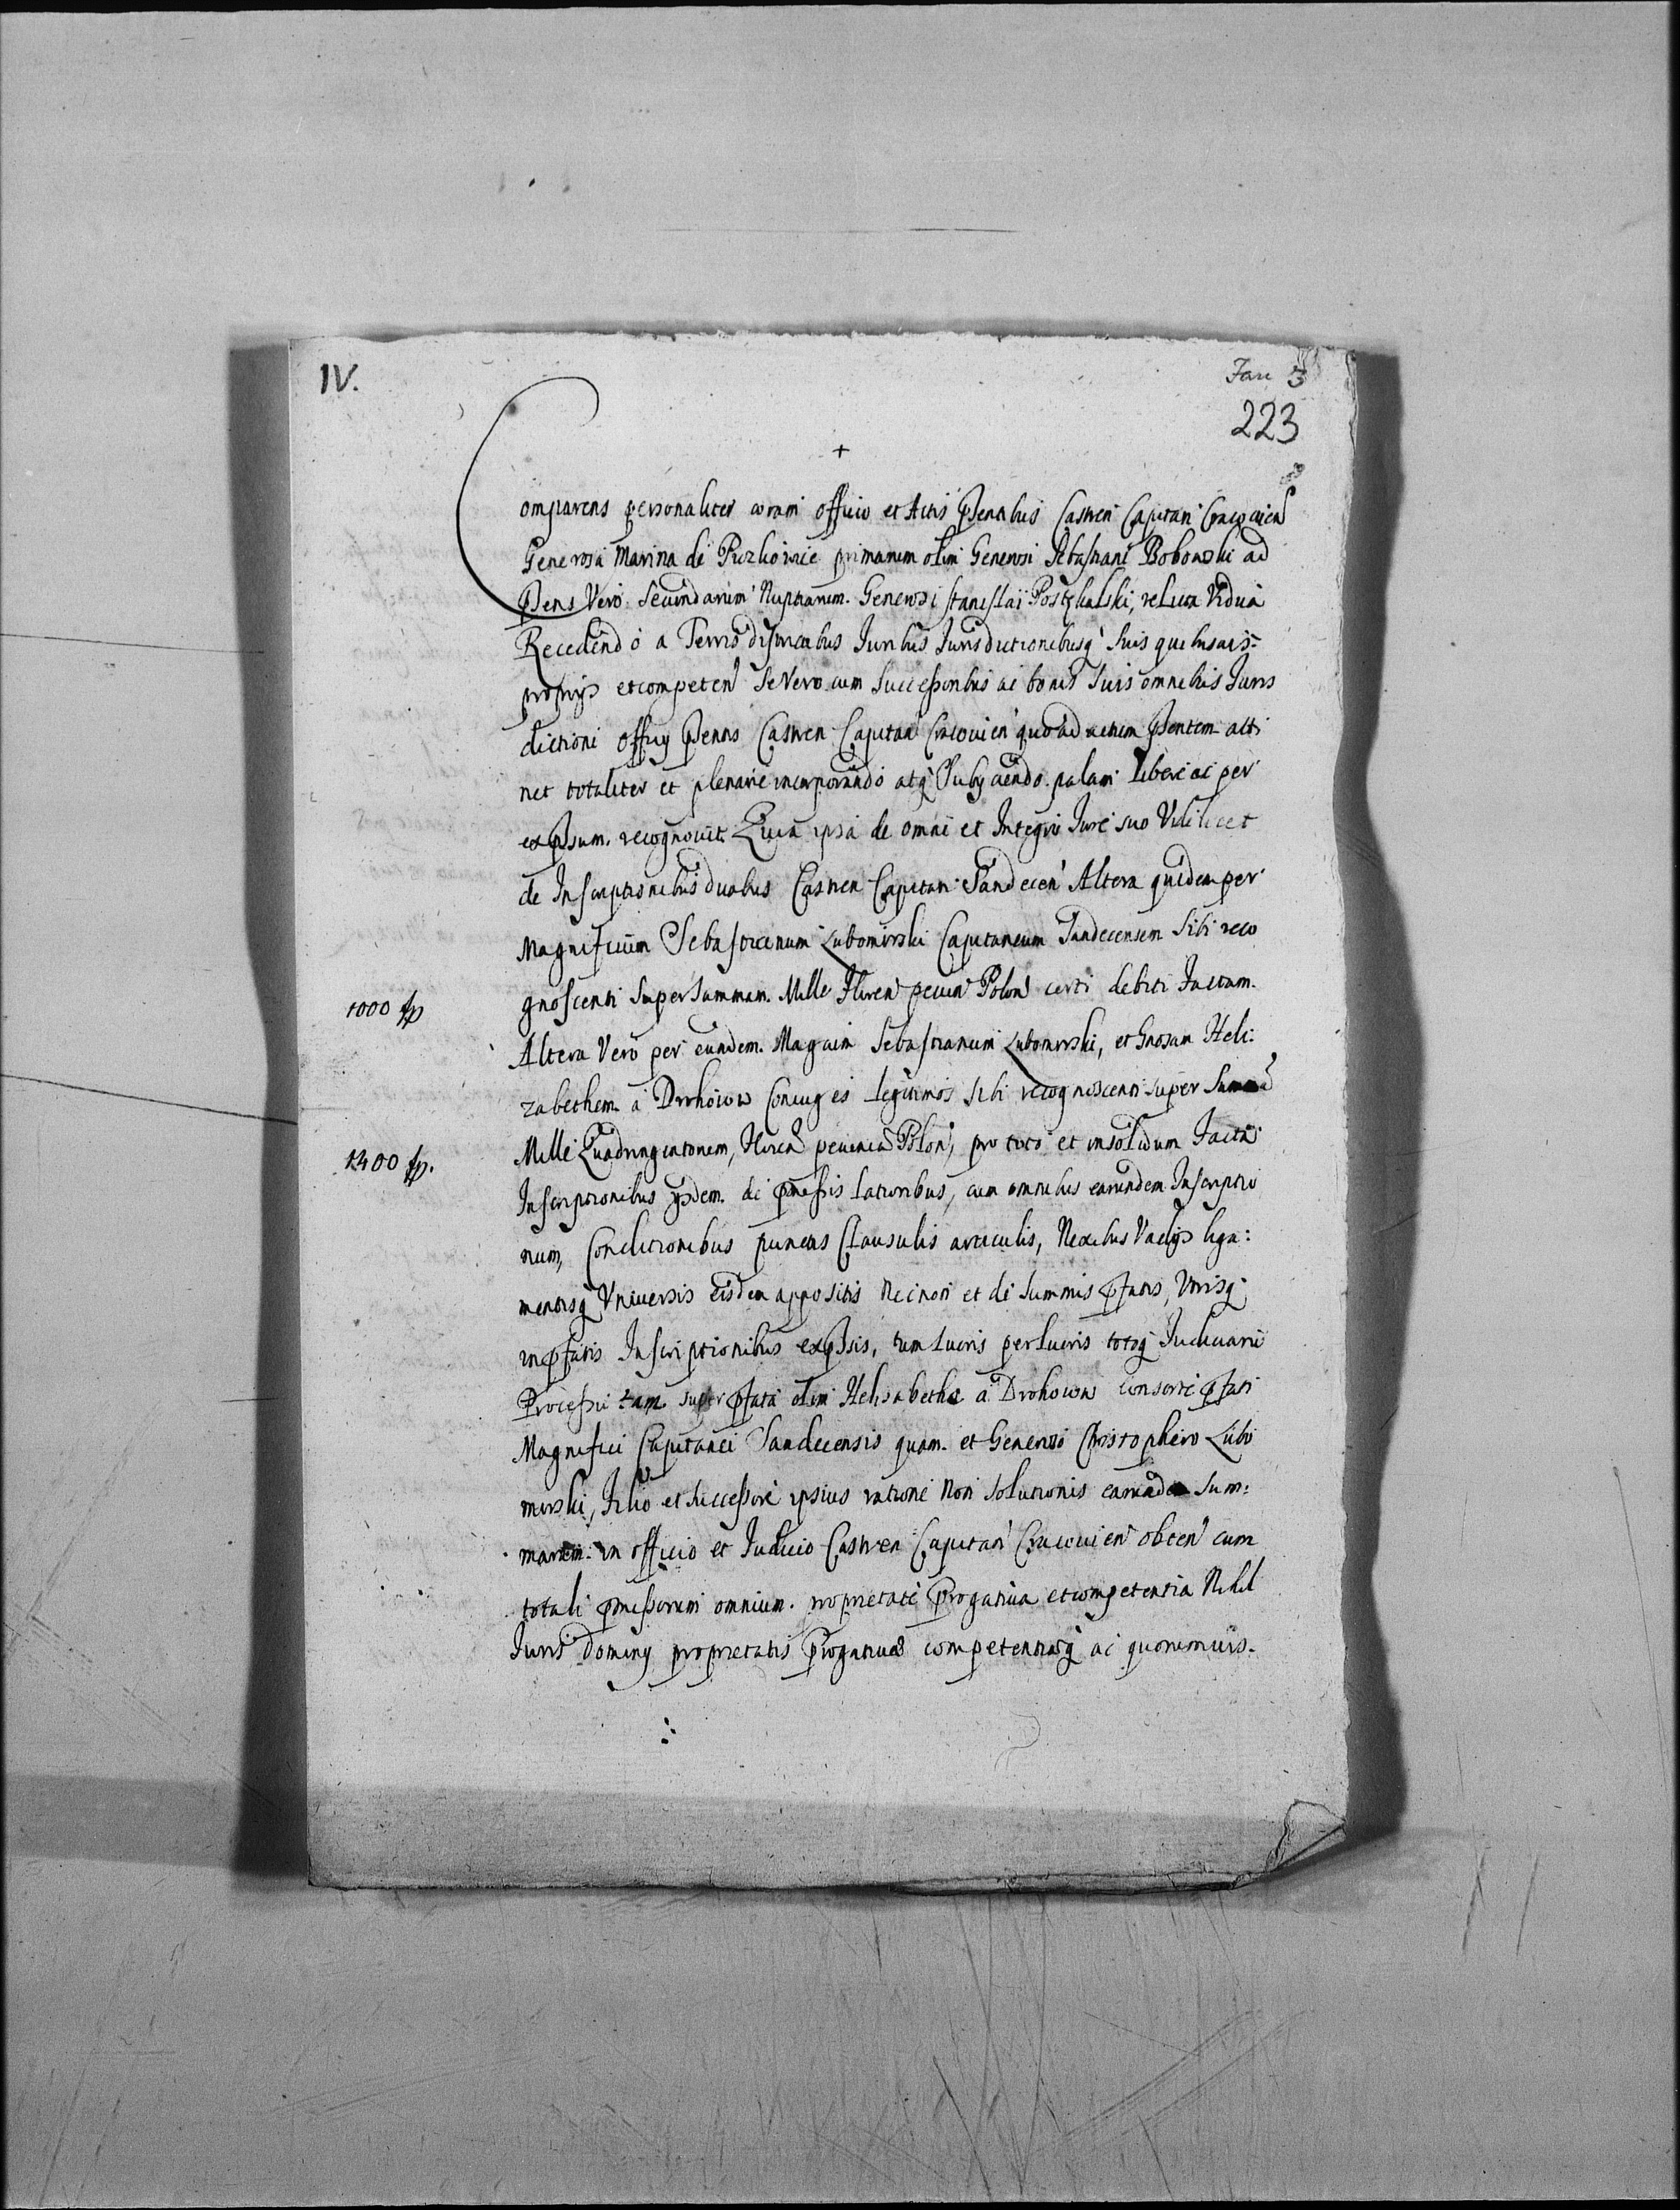 IV.
Fasc 3
223
+
Comparens personaliter coram officio et Actis Pñtibus Castren Capitan Cracovien
Generosa Marina de primarum olim Generosi Sebastiani Bobowski ad
Pñs Vero Secundarum Nuptiarum. Generosi Stanislai Postękalski, relicta Vidua
Recedendo a Terris districtibus Juribus Jurisdictionibusq suis quibusuis
proprijs et competen Se Vero cum Successoribus ac bonis Suis omnibus Juris
dictioni Officij Pñtis Castren Capitan Cracouien quo ad actum Pñtem atti
net totaliter et plenarie incorporando atq Subijciendo. palam libere ac per
expssum. recognouit. Quia ipsa de omni et Integro Jure suo Videlicet
de Inscriptionibus duabus Castren Capitan Sandecen Altera quidem per
Magnificum Sebastianum Lubomirski Capitaneum Sandecensem Sibi reco
1000 fp
gnoscenti Super Summam. Mille Floren pecun Polon certi debiti Factam.
Altera Vero per eundem. Magcum Sebastianum Lubomirski, et Gnosam Heli:
zabethem. a Drohoiow Coniuges legitimos sibi recognoscenti super Summa
1400 fp.
Mille Quadringentorum, Floren pecuniæ Polon, pro toto et in solidum Facta
Inscriptionibus ijsdem. de pmissis latioribus, cum omnibus earundem Inscriptio
num, Conditionibus punctis Clausulis articulis, Nexibus Vadijs liga:
mentisq Vniuersis eisdem appositis Necnon et de Summis pfatis, Vtrisq
in pfatis Inscriptionibus expssis, tum lucris perlucris totoq Judiciario
Processu tam super pfata olim Helisabetha a Drohoiow consorte pfati
Magnifici Capitanei Sandecensis quam. et Generoso Christophoro Lubo
mirski, Filio et Successore ipsius ratione Non Solutionis earundem Sum:
marum. in officio et Judicio Castren Capitan Cracouien obten cum
totali pmissorum omnium. proprietate Progatiua et competentia Nihil
Juris Dominij proprietatis Progatiuæ competentiæq ac quorumuis.